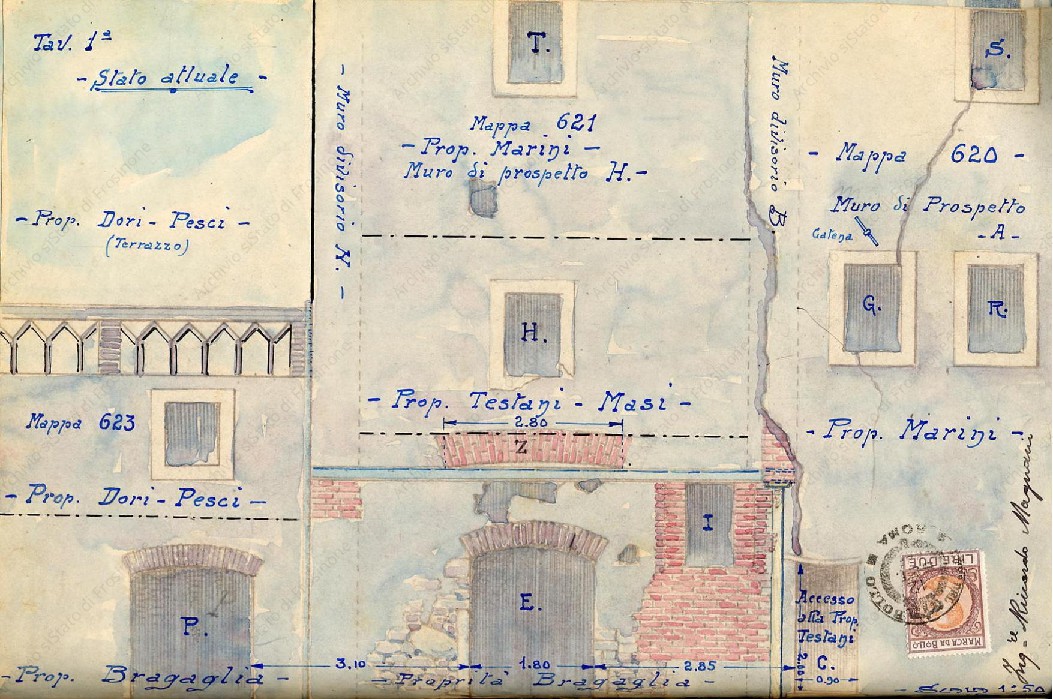 Tav. 1ª
- Stato attuale -
- Prop. Dori - Pesci -
(Terrazzo)
Mappa 623
- Prop. Dori - Pesci -
P.
- Prop. Bragaglia -
- Muro divisorio N. -
T.
Mappa 621
- Prop. Marini -
Muro di prospetto H. -
H.
- Prop. Testani - Masi -
2.80
Z
I
E.
3,10
1.80
2.85
- Proprità Bragaglia -
Muro divisorio B.
S.
- Mappa 620 -
Muro di Prospetto
- A -
Catena
G.
R.
- Prop. Marini -
Accesso
alla Prop.
Testani
C.
0.90
LIRE DUE
MARCA DA BOLLO
ROMA
Ing.re Riccardo Magnani
1:50